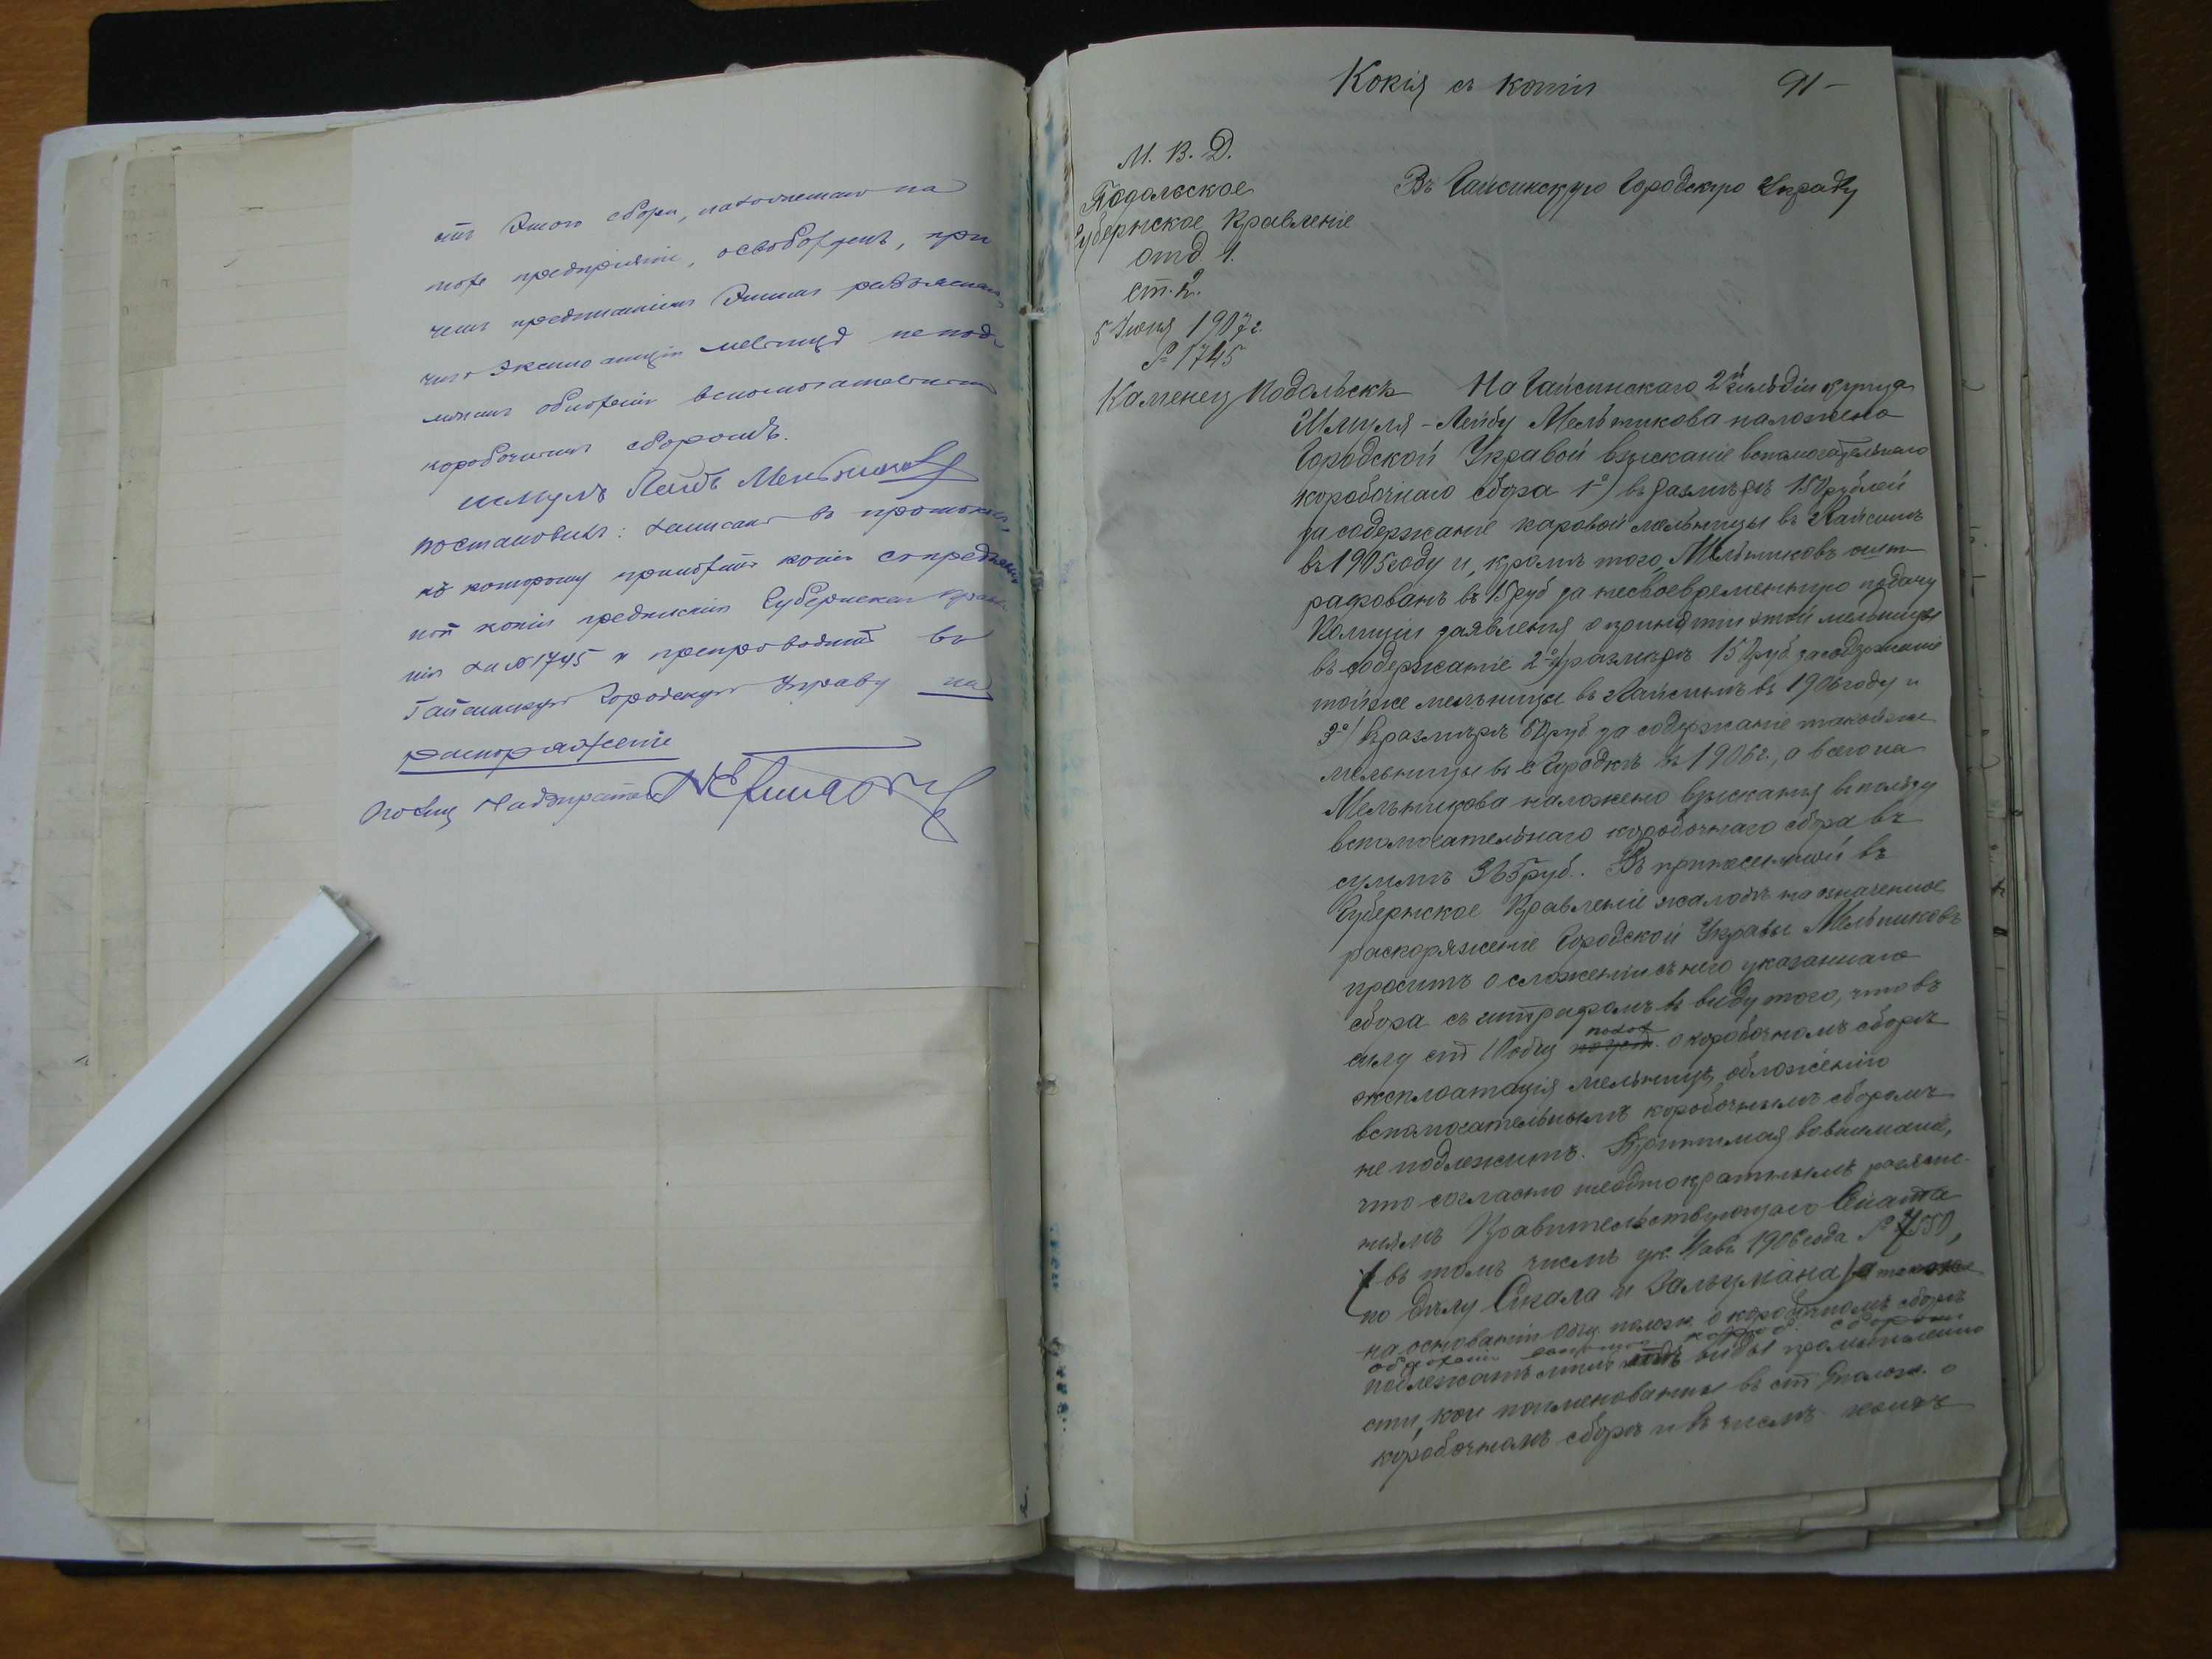 отъ этого сбора, наложеннаго на
тоже предпріятіе, освобожденъ, при
чемъ предписаніемъ этимъ разъяснено,
что эксплоатація мельницъ не подле
обложенію вспомогательнымъ
коробочнымъ сборомъ.
Шмуль Лейбъ Мельниковъ
Постановилъ: записать въ протоколъ,
къ которому приложить копію съ представлен
ной копіи предписанія Губернскаго Правле
нія за №1745 и препроводить въ
Гайсинскую Городскую Управу на
распоряженіе
Полиц Надзиратель
Копія съ копіи 91-
М. В. Д.
Подольское
Губернское Правленіе
отд. 1.
ст. 2.
5 Іюня 1907 г.
№ 1745
Каменец Подольскъ
Въ Гайсинскую Городскую Управу
На Гайсинскаго 2й гильдіи купца
Шмуля-Лейбу Мельникова наложено
Городской Управой взысканіе вспомогательнаго
коробочнаго сбора 1о) въ размѣрѣ 150 рублей
за содержаніе паровой мельницы въ Гайсинѣ
въ 1905 году и, кромѣ того, Мельниковъ ошт
рафованъ въ 15 руб за несвоевременную подачу
Полиціи заявленія о принятіи этой мельницы
въ содержаніе 2о) размѣрѣ 150 руб. за содержаніе
тойже мельницы въ Гайсинѣ въ 1906 году и
3о) въ размѣрѣ 50 руб за содержаніе такойже
мельницы въ с Городкѣ въ 1906 г., а всего на
Мельникова наложено взысканія въ пользу
вспомогательнаго коробочнаго сбора въ
суммѣ 365 руб. Въ принесенной въ
Губернское Правленіе жалобѣ на означенное
распоряженіе Городской Управы Мельниковъ
проситъ о сложеніи съ него указаннаго
сбора съ штрафомъ въ виду того, что въ
силу ст 10 общ полож о коробочномъ сборѣ
эксплоатація мельницъ обложенію
вспомогательнымъ коробочнымъ сборомъ
не подлежитъ. Принимая во вниманіе,
что согласно неоднократнымъ разъясне-
ніямъ Правительствующаго Сената
(въ томъ числѣ ук. 1906 года №
по дѣлу Скала и Зальцмана) а также
на основаніи Общ. полож. о коробочномъ сборѣ
обложенію короб. сборомъ
подлежатъ лишь виды промышленно
сти, кои поименованы въ ст полож. о
коробочномъ сборѣ и въ числѣ коихъ